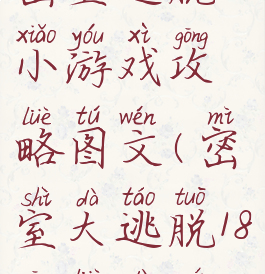 xiǎo yóu xì gōng
小游戏攻
lüè tú wén mì
略图文(密
shì dà táo tuō
室大逃脱18